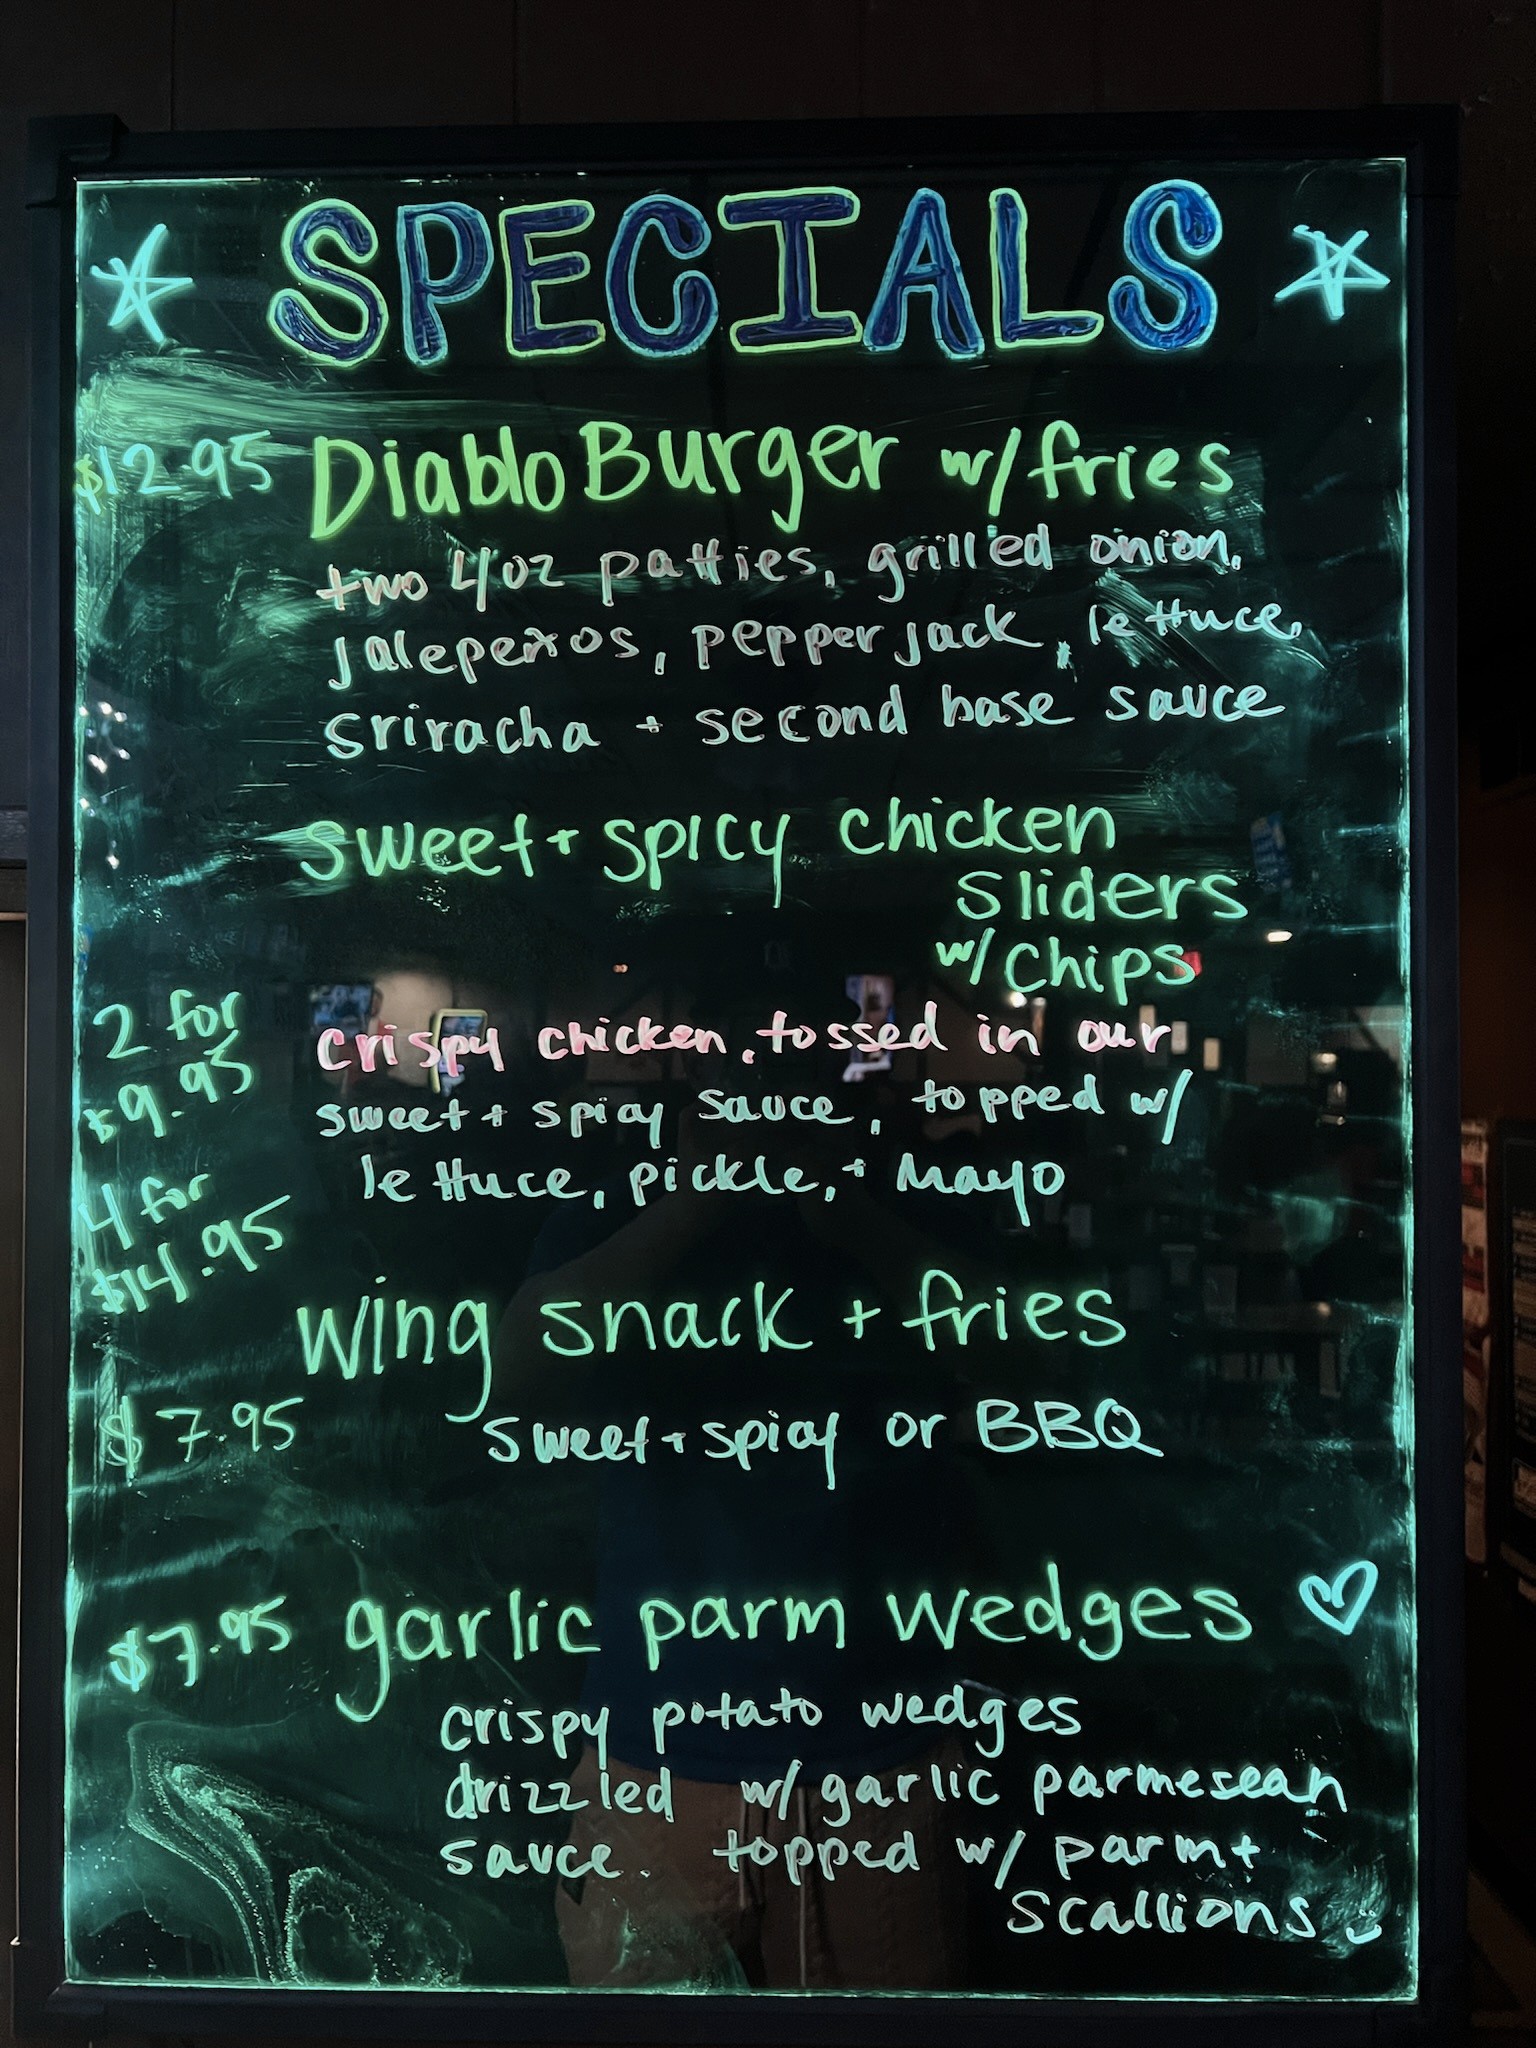 SPECIALS
$12.95 Diablo Burger w/ fries
two 4oz patties, grilled onion,
jalepeños, pepper jack, lettuce,
sriracha + second base sauce
sweet + spicy chicken
sliders
w/ chips
2 for
$9.95
crispy chicken, tossed in our
sweet + spicy sauce, topped w/
lettuce, pickle, + mayo
4 for
$14.95
wing snack + fries
$7.95
sweet + spicy or BBQ
$7.95 garlic parm wedges
crispy potato wedges
drizzled w/ garlic parmesean
sauce. topped w/ parm +
scallions